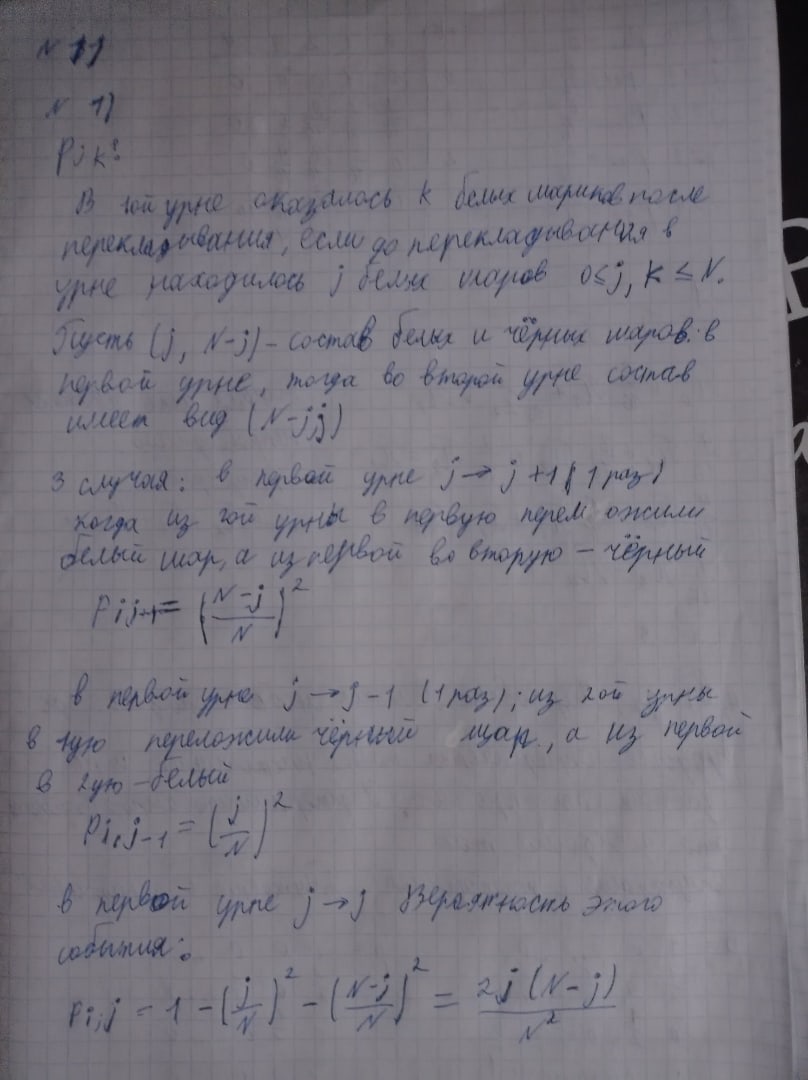 N 11
N 1)
Pjk:
В 1ой урне оказалось k белых шариков после
перекладывания, если до перекладывания в
урне находилось j белых шаров 0≤j, k ≤ N.
Пусть (j, N-j) - состав белых и чёрных шаров в
первой урне, тогда во второй урне состав
имеет вид (N-j,j)
3 случая: в первой урне j → j+1 (1 раз)
когда из 2ой урны в первую переложили
белый шар, а из первой во вторую - чёрный
Pjj+1 = (N-j/N)²
в первой урне j → j-1 (1 раз); из 2ой урны
в 1ую переложили чёрный шар, а из первой
в 2ую - белый
Pj,j-1 = (j/N)²
в первой урне j → j Вероятность этого
события:
Pj,j = 1 - (j/N)² - (N-j/N)² = 2j(N-j)/N²